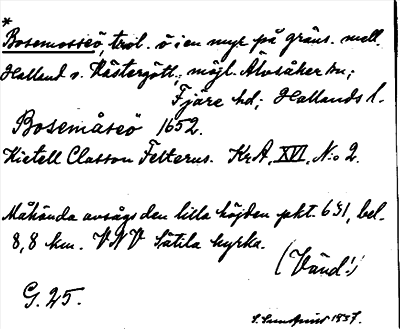 *
Bosemosseö, trol. ö i en myr på gräns. mell.
Halland o. Västergötl., möjl. Älvsåker sn;
Fjäre hd; Hallands l.
Bosemåseö 1652.
Kietell Classon Felterus. KrA, XVI, N:o 2.
Måhända avsågs den lilla höjden pkt. 631, bel.
8,8 km. VNV Sätila kyrka.
(Vänd!)
G. 25.
1937.